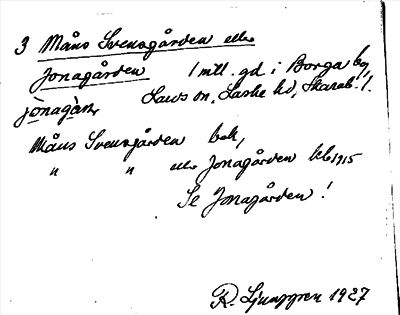 3 Måns Svensgården eller
Jonagården 1 mtl. gd. i Borga by,
jònagàɳ Saus sn, Laske hd, Skarab. l.
Måns Svensgården bok,
" " eller Jonagården kb 1915
Se Jonagården!
R. Ljunggren 1927